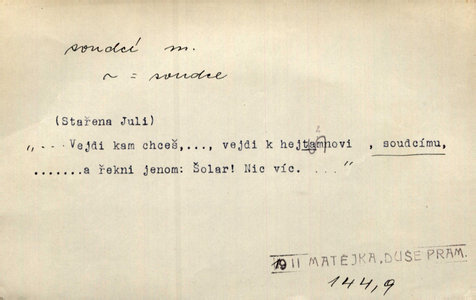 soudcí m.
~ = soudce
(Stařena Juli)
"...Vejdi kam chceš,..., vejdi k hejtmanovi , soudcímu,
.......a řekni jenom: Šolar! Nic víc. ...."
1911 MATĚJKA, DUŠE PRAM.
144,9